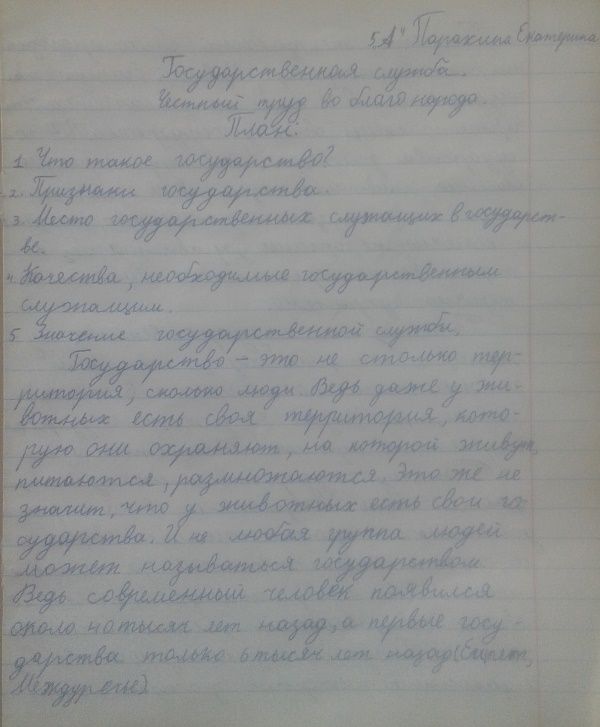 5„А" Парахина Екатерина
Государственная служба.
Честный труд во благо народа.
План:
1. Что такое государство?
2. Признаки государства.
3. Место государственных служащих в государст-
ве.
4. Качества, необходимые государственным
служащим.
5. Значение государственной службы.
Государство – это не столько тер-
ритория, сколько люди. Ведь даже у жи-
вотных есть своя территория, кото-
рую они охраняют, на которой живут,
питаются, размножаются. Это же не
значит, что у животных есть свои го-
сударства. И не любая группа людей
может называться государством.
Ведь современный человек появился
около 40 тысяч лет назад, а первые госу-
дарства только 6 тысяч лет назад (Египет,
Междуречье)